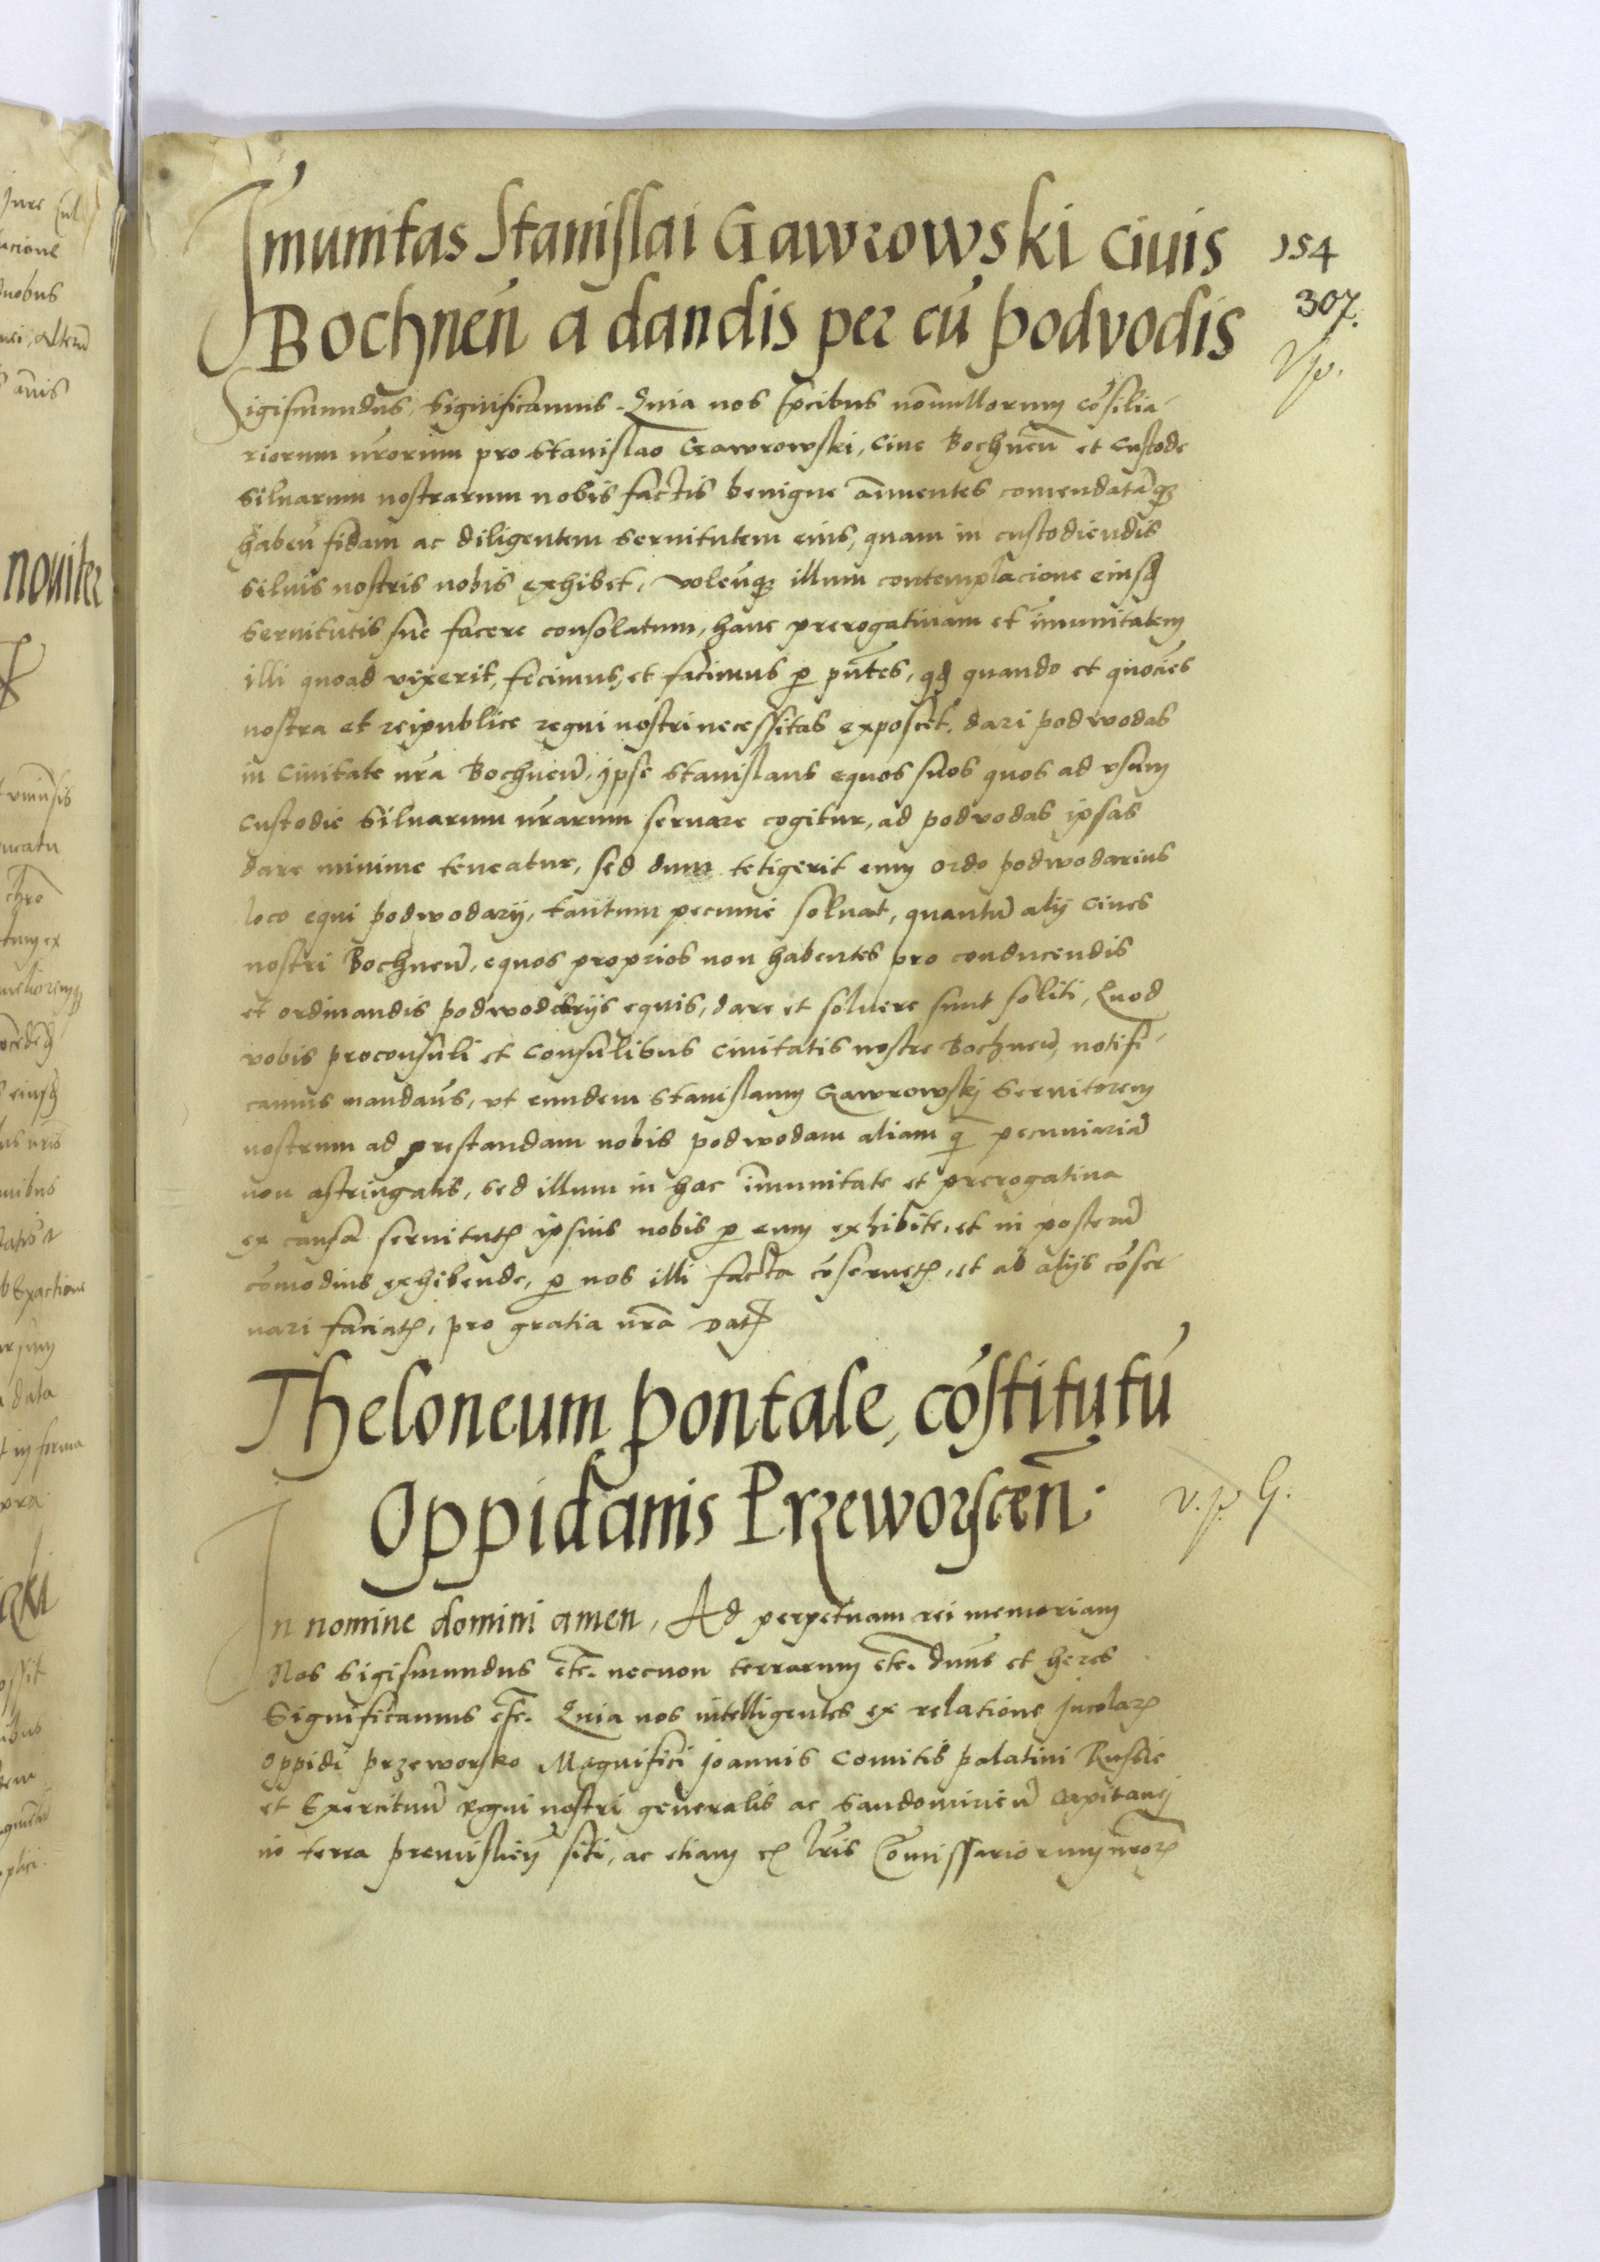 Jmunitas Stanislai Gawrowski Ciuis
Bochneñ a dandis per eũ podvodis
154
307.
Vp.
Sigismundus, Significamus. Quia nos p̃cibus nõnullorum cõsilia-
riorum nr̃orum pro Stanislao Gawrowski, Ciue Bochneñ et Custode
Siluarum nostrarum nobis factis benigne ãnuentes comendatãqȝ
habeñ fidam ac diligentem Seruitutem eius, quam in custodiendis
Siluis nostris nobis exhibet, voleñqȝ illum contemplacione eiusdẽ
Seruitutis sue facere consolatum, hanc prerogatiuam et ĩmunitatem
illi quoad vixerit, fecimus, et facimus p̱ pñtes, qđ quando et quocies
nostra et reipublice regni nostri necessitas exposcet, dari podwodas
in Ciuitate nr̃a Bochneñ, ipse Stanislaus equos suos quos ad vsum
Custodie Siluarum nr̃arum seruare cogitur, ad podvodas ipsas
dare minime teneatur, sed dum tetigerit eum ordo podwodarius
loco equi podwodarij, tantum pecunie soluat, quantũ alij Ciues
nostri Bochneñ, equos proprios non habentes pro conducendis
et ordinandis podwodarijs equis, dare et soluere sunt soliti, Quod
vobis proconsuli et Consulibus Ciuitatis nostre Bochneñ, notifi-
camus mandañs, vt eundem Stanislaum Gawrowskj Seruitorem
nostrum ad prestandam nobis podwodam aliam q̃ pecuniariã
non astringatis, Sed illum in hac ĩmunitate et prerogatiua
ex causa seruitutꝭ ipsius nobis p̱ eum exhibite, et in posterũ
cõmodius exhibende, p̱ nos illi facta cõseruetꝭ, et ab alijs cõser-
uari faciatꝭ, pro gratia nr̃a Datꝭ
Theloneum pontale, cõstitutũ
Oppidanis Przeworsceñ.
v. p. G.
In nomine domini amen, Ad perpetuam rei memoriam
Nos Sigismundus etc̃. necnon terrarum etc̃. dñus et heres
Significamus etc̃. Quia nos intelligentes ex relatione Jncolarꝝ
Oppidi przeworsko Magnifici Joannis Comitis palatini Russie
et Exercituũ regni nostri generalis ac Sandomirieñ Capitanej
in terra premislieñ siti, ac etiam ex lr̃is Com̃issariorum nr̃orꝝ